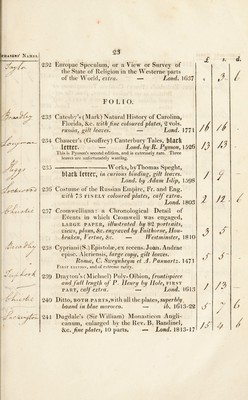 23
£ s. d.
232 Europae Speculum, or a View or Survey of
the State of Religion in the Westerne parts
of the World, extra. — Lond. 1637
. 3 . 6
FOLIO.
233 Catesby's (Mark) Natural History of Carolina,
Florida, &c. with fine coloured plates, 2 vols.
russia, gilt leaves. — Lond. 1771
16 16
234 Chaucer's (Geoffrey) Canterbury Tales, black
letter. — Lond. by R. Pynson, 1526
13 13
This is Pynson's second edition, and is extremely rare.
leaves are unfortunately wanting.
235 ——— Works, by Thomas Speght,
black letter, in curious binding, gilt leaves.
Lond. by Adam Islip, 1598
236 Costume of the Russian Empire, Fr. and Eng.
with 73 FINELY coloured plates, calf extra.
Lond. 1803
2 12 6
237 Cromwelliana: a Chronological Detail of
Events in which Cromwell was engaged,
LARGE PAPER, illustrated by 92 portraits,
views, plans, &c. engraved by Faithorne, Hou-
braken, Vertue, &c. — Westminster, 1810
238 Cypriani (S.) Epistolæ, ex recens. Joan. Andreæ
episc. Aleriensis, large copy, gilt leaves.
Romæ, C. Sweynheym et A. Pannartz. 1471
5 5
FIRST EDITION, and of extreme rarity.
239 Drayton's (Michael) Poly-Olbion, frontispiece
and full length of P. Henry by Hole, FIRST
PART, calf extra. — Lond. 1613
1 13
240 Ditto, BOTH PARTS, with all the plates, superbly
bound in blue morocco. — ib. 1613-22
5 7 6
241 Dugdale's (Sir William) Monasticon Angli-
canum, enlarged by the Rev. B. Bandinel,
&c. fine plates, 10 parts. — Lond. 1813-17
15 4 6